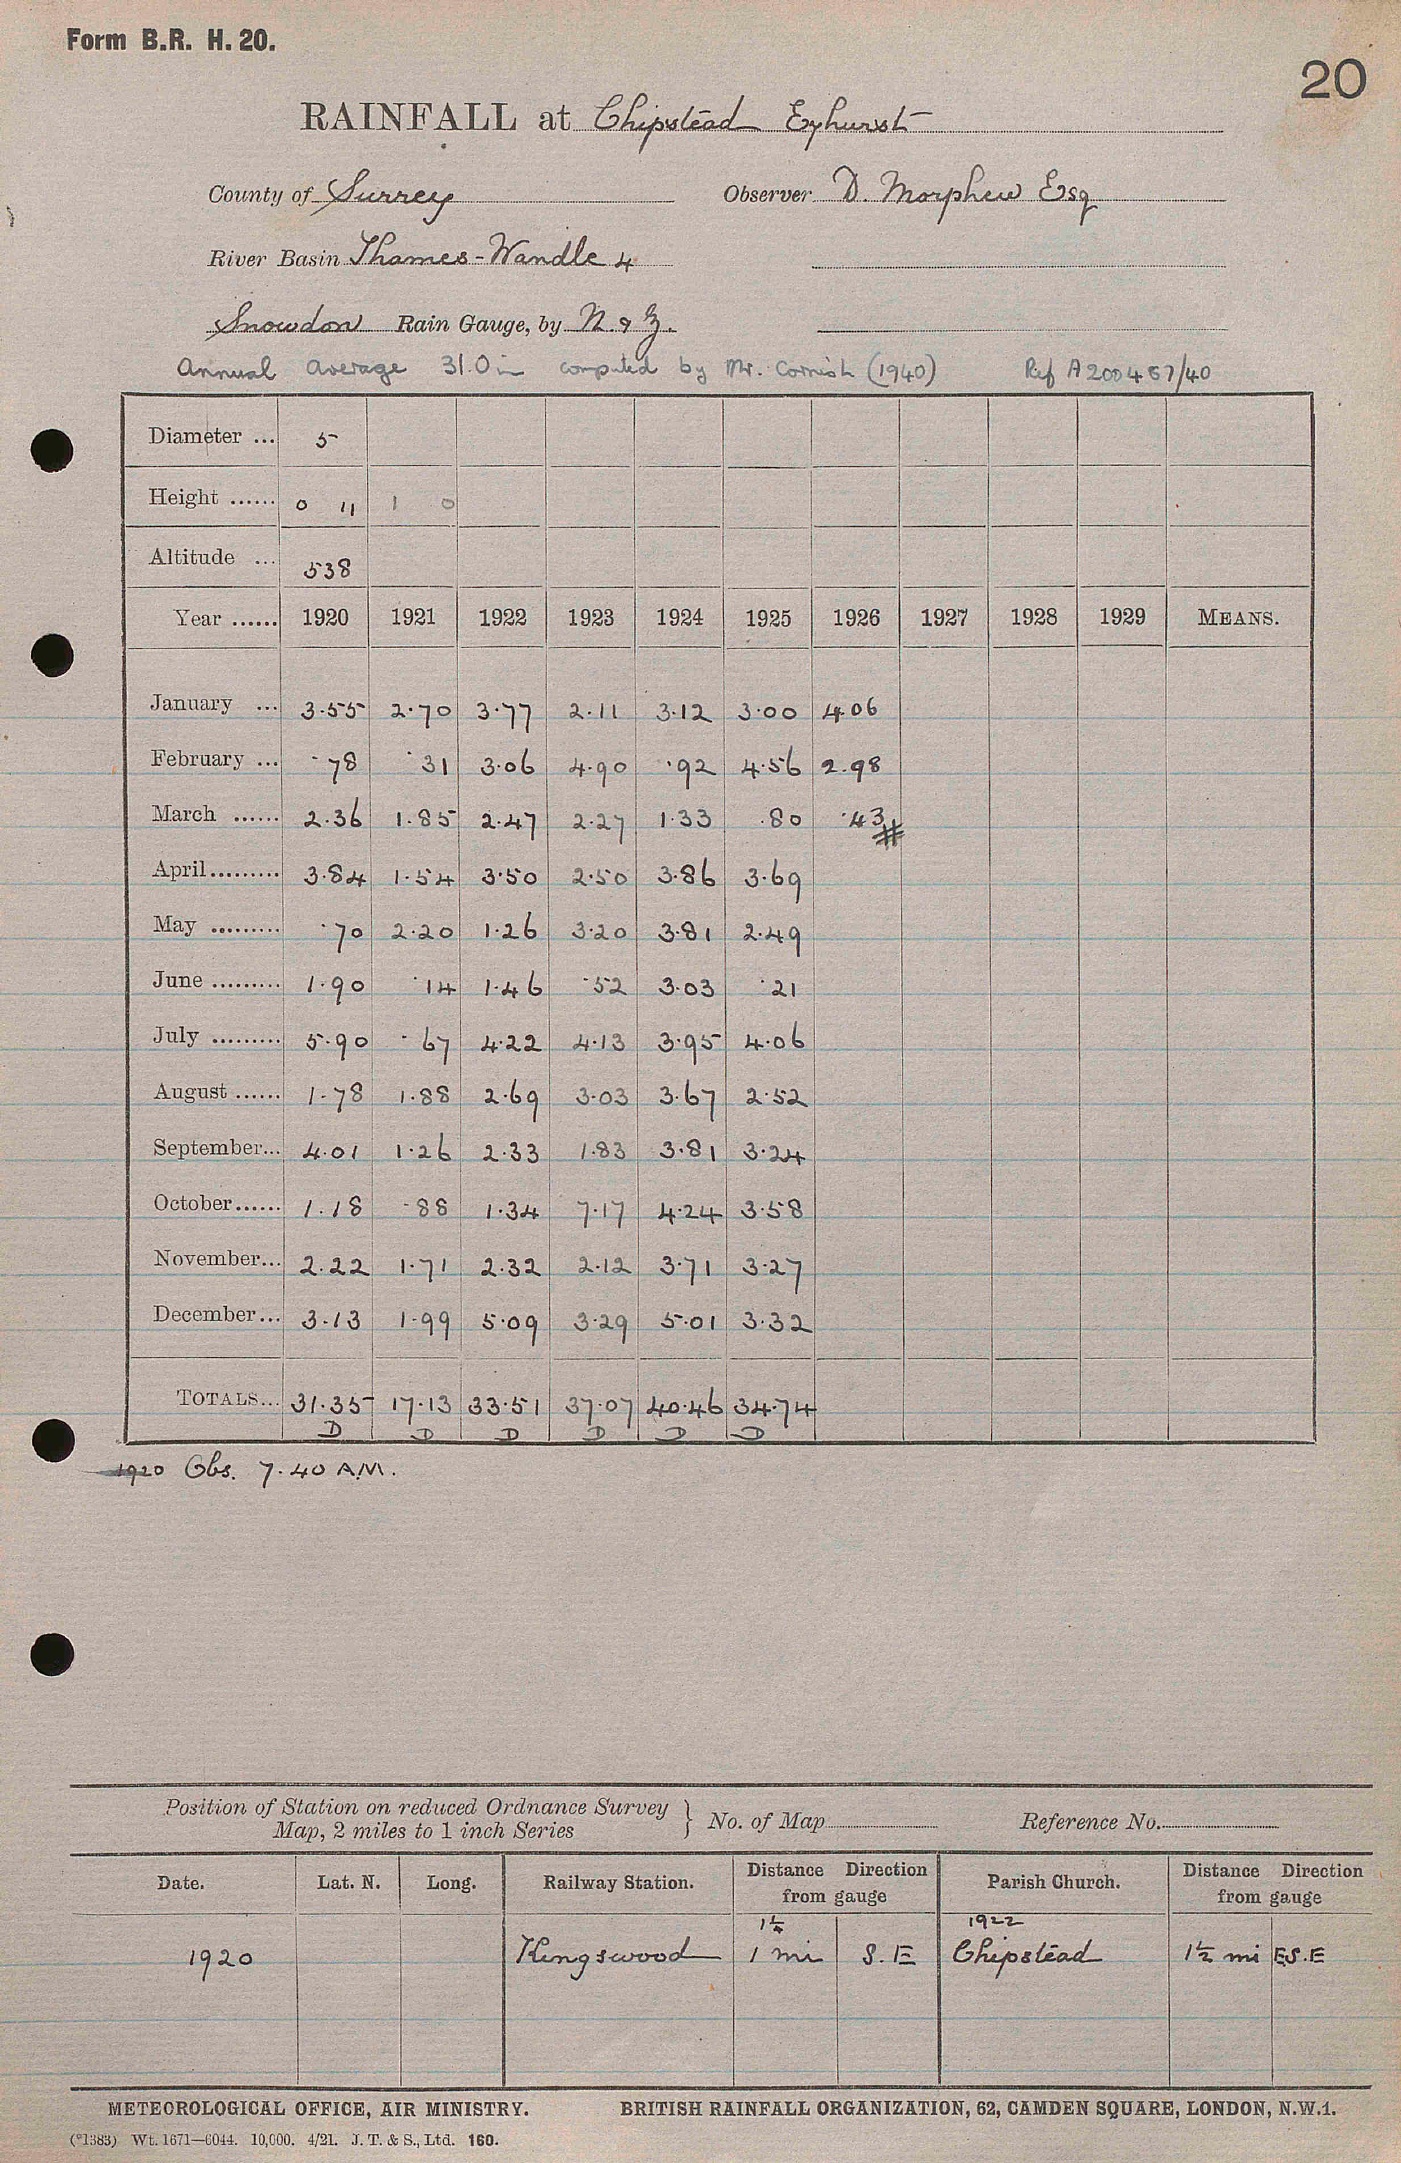 Form B.R. H. 20.
20
RAINFALL at Chipstead Eyhurst
County of Surrey Observer D. Morphew Esq
River Basin Thames-Wandle 4
Snowdon Rain Gauge, by N. & Z.
Annual average 31.0 in computed by Mr. Cornish (1940) Ref A200487/40
Diameter ... 5
Height ...... 0 11 1 0
Altitude ... 538
Year ...... 1920 1921 1922 1923 1924 1925 1926 1927 1928 1929 MEANS.
January ... 3.55 2.70 3.77 2.11 3.12 3.00 4.06
February ... .78 .31 3.06 4.90 .92 4.56 2.98
March ...... 2.36 1.85 2.47 2.27 1.33 .80 .43 #
April......... 3.84 1.54 3.50 2.50 3.86 3.69
May ......... .70 2.20 1.26 3.20 3.81 2.49
June ......... 1.90 .14 1.46 .52 3.03 .21
July ......... 5.90 .67 4.22 4.13 3.95 4.06
August ...... 1.78 1.88 2.69 3.03 3.67 2.52
September... 4.01 1.26 2.33 1.83 3.81 3.24
October...... 1.18 .88 1.34 7.17 4.24 3.58
November... 2.22 1.71 2.32 2.12 3.71 3.27
December... 3.13 1.99 5.09 3.29 5.01 3.32
TOTALS... 31.35 17.13 33.51 37.07 40.46 34.74
D D D D D D
1920 Obs. 7.40 A.M.
Position of Station on reduced Ordnance Survey
Map, 2 miles to 1 inch Series } No. of Map Reference No.
Date. Lat. N. Long. Railway Station. Distance Direction from gauge Parish Church. Distance Direction from gauge
1¼ 1922
1920 Kingswood 1 mi S.E Chipstead 1½ mi ES.E
METEOROLOGICAL OFFICE, AIR MINISTRY. BRITISH RAINFALL ORGANIZATION, 62, CAMDEN SQUARE, LONDON, N.W.1.
(*1383) Wt. 1671—6044. 10,000. 4/21. J. T. & S., Ltd. 160.